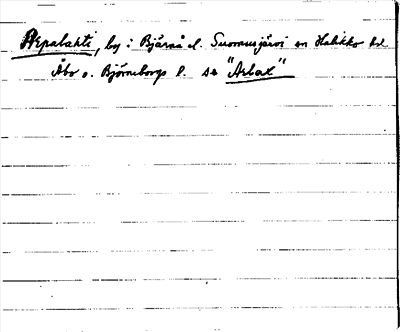 Repalahti, by i Bjärnå el. Suomusjärvi sn Halikko hd
Åbo o. Björneborgs l. se "Arlax"